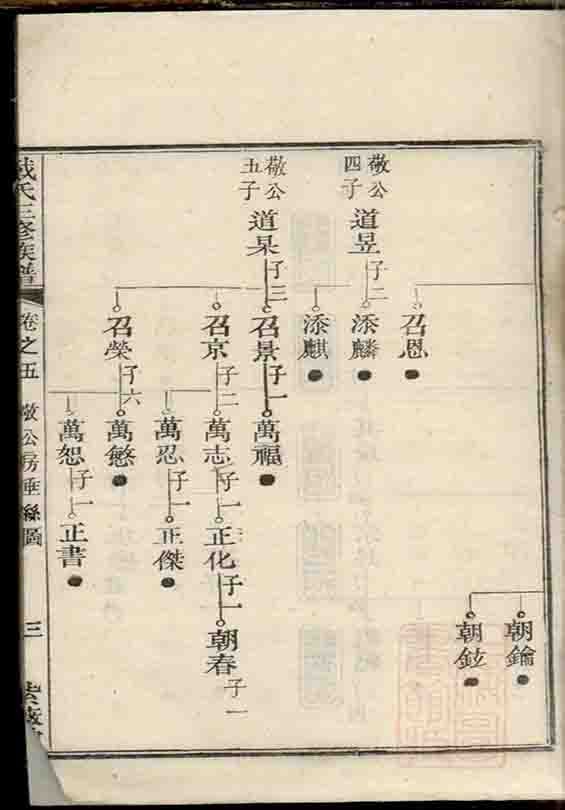 敬公四子
道昱
子二
召恩
添麟
添麒
敬公五子
道杲
子三
召景
子一
萬福
召京
子二
萬志
子一
正化
子一
朝春
子一
萬忍
子一
正傑
召榮
子六
萬慜
萬恕
子一
正書
朝鑰
朝鉝
氏三修族譜
卷之五
敬公房垂絲圖
三